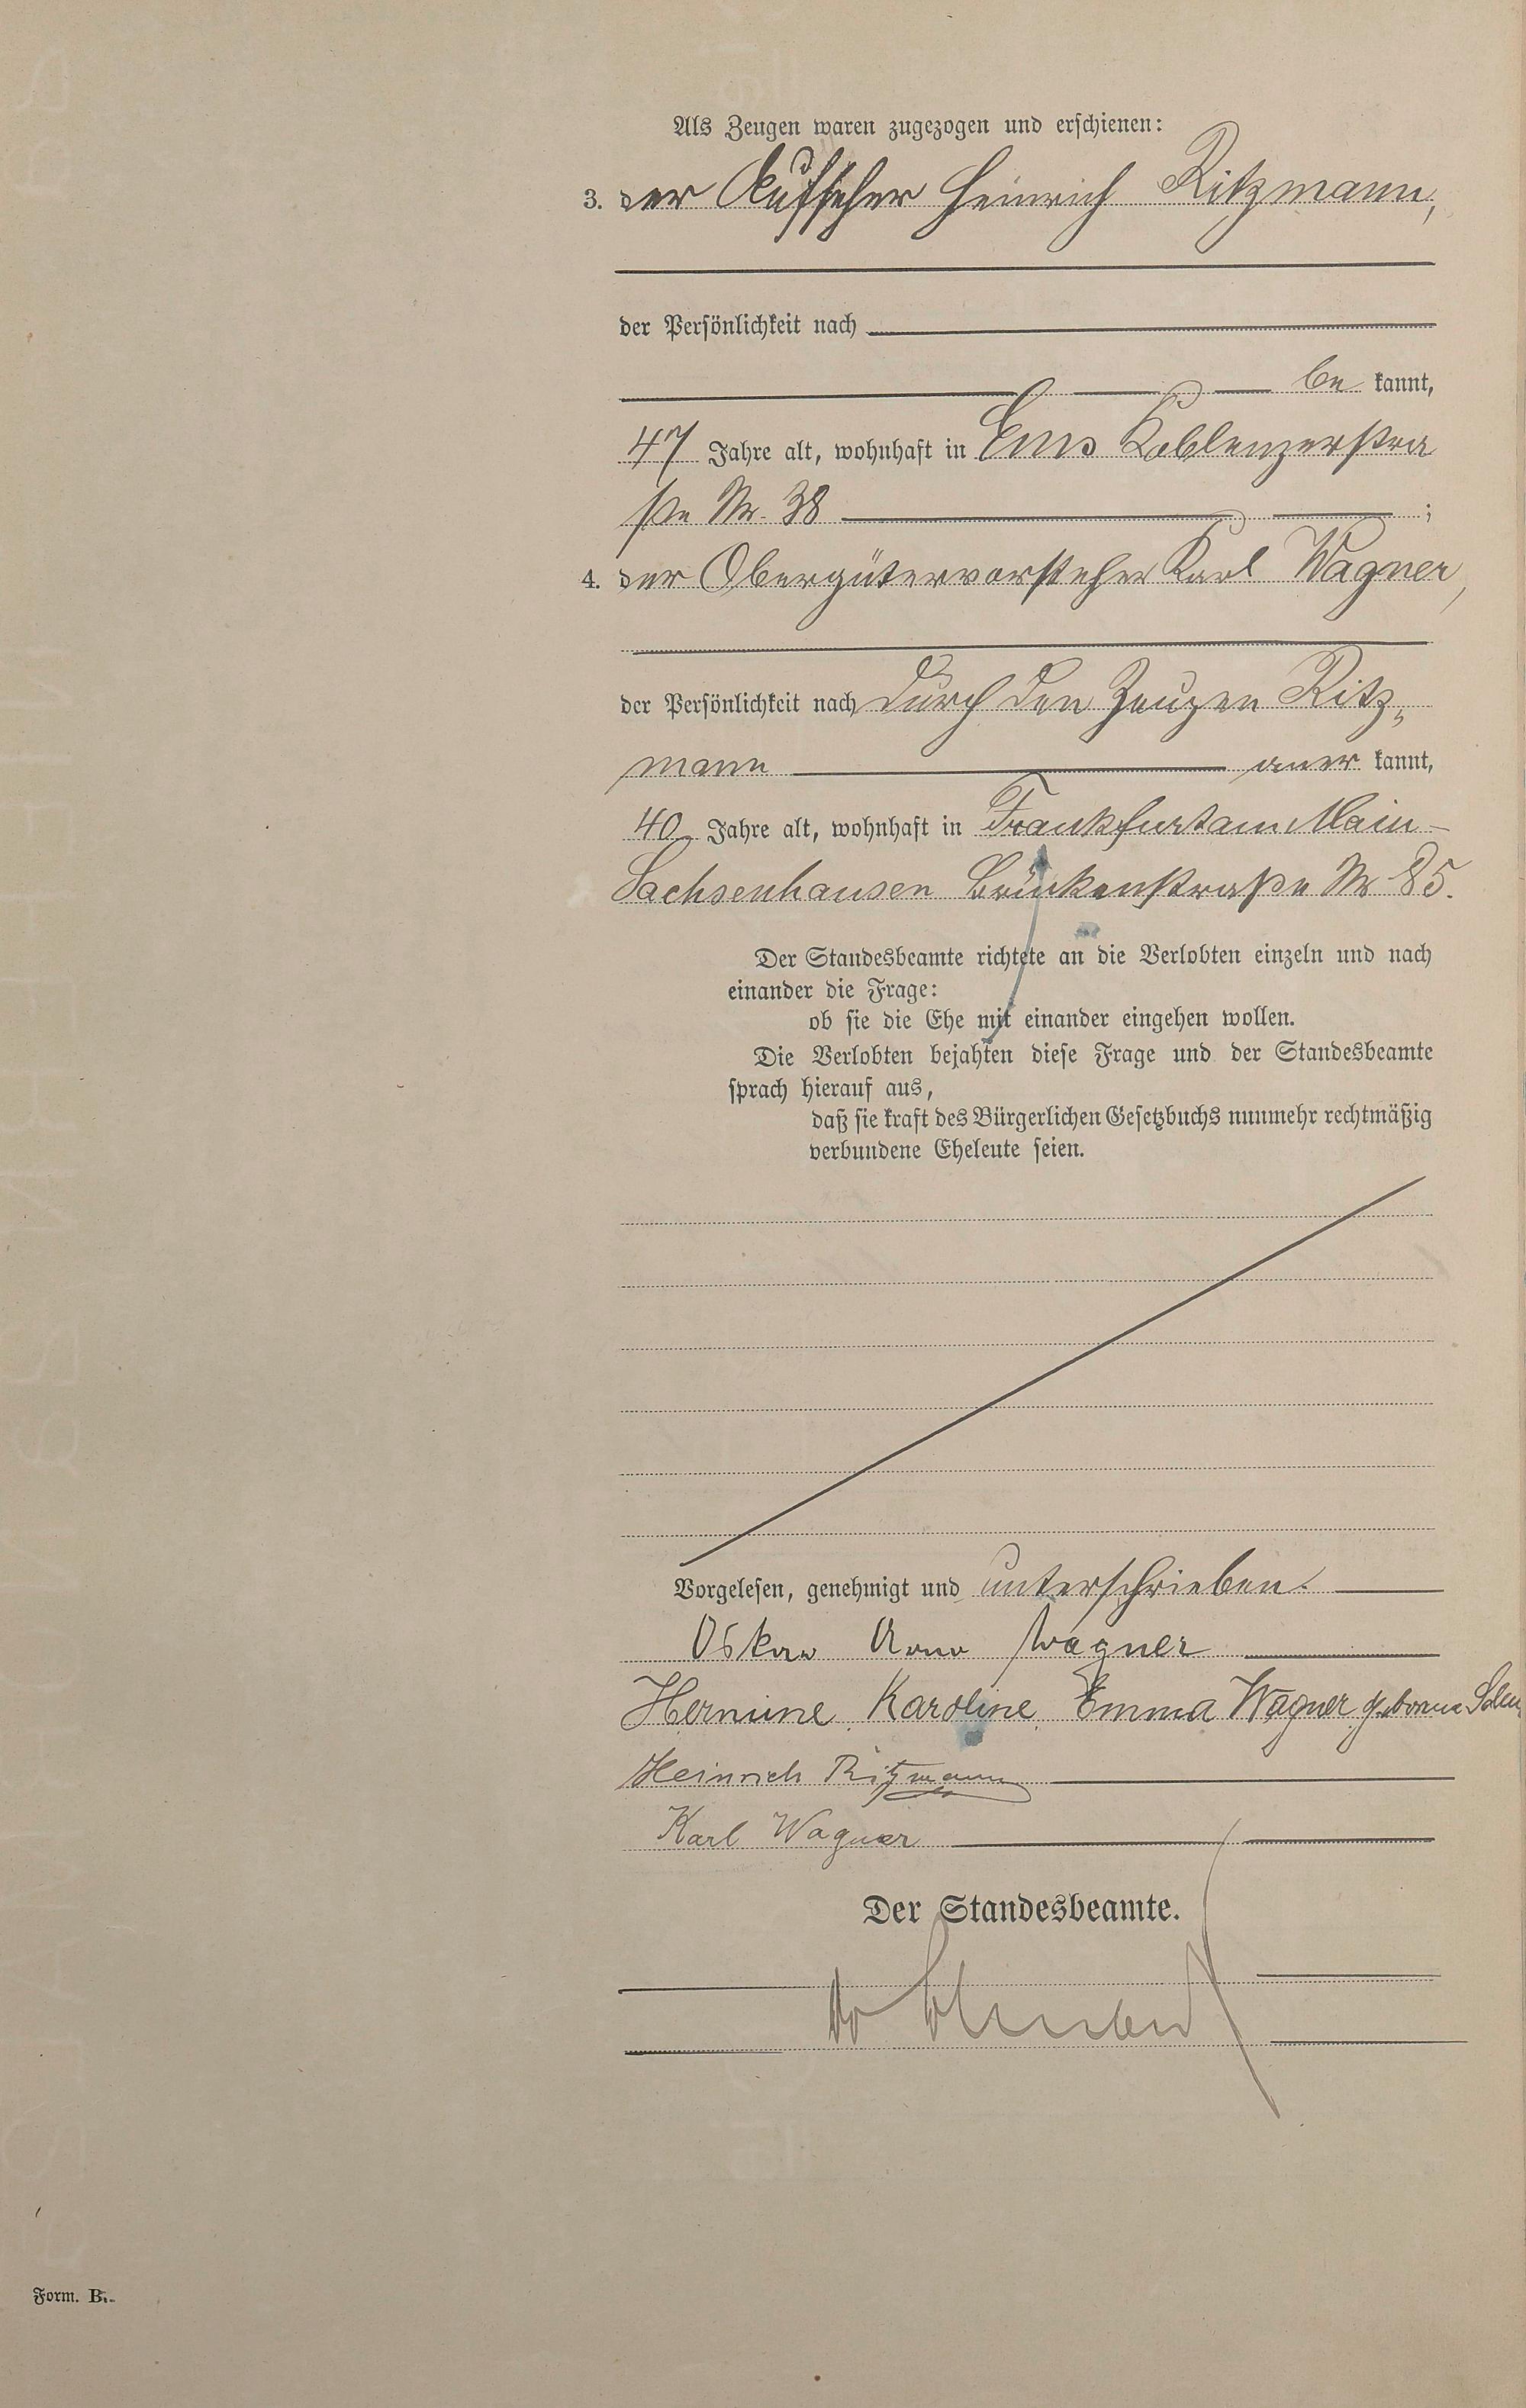 Als Zeugen waren zugezogen und erschienen:
3. der Aufseher Heinrich Ritzmann,
der Persönlichkeit nach
be kannt,
47 Jahre alt, wohnhaft in Ems Koblenzerstra
ße Nr. 38 ;
4. der Obergütervorsteher Karl Wagner,
der Persönlichkeit nach durch den Zeugen Ritz-
mann aner kannt,
40 Jahre alt, wohnhaft in Frankfurt am Main-
Sachsenhausen Brückenstraße Nr 85.
Der Standesbeamte richtete an die Verlobten einzeln und nach
einander die Frage:
ob sie die Ehe mit einander eingehen wollen.
Die Verlobten bejahten diese Frage und der Standesbeamte
sprach hierauf aus,
daß sie kraft des Bürgerlichen Gesetzbuchs nunmehr rechtmäßig
verbundene Eheleute seien.
Vorgelesen, genehmigt und unterschrieben.
Oskar Wagner
Hermine Karoline Emma Wagner geborene
Heinrich Ritzmann
Karl Wagner
Der Standesbeamte.
Form. B.